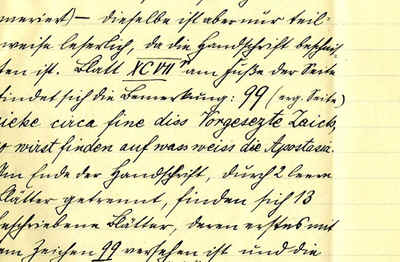 meriert) — dieselbe ist aber nur teil-
weise leserlich, da die Handschrift beschnit-
ten ist. Blatt XCVII r am Fuße der Seite
findet sich die Bemerkung: 99 (erg. Seite)
sieke circa fine diss Vorgesezte Zaich,
so wirst finden auf wass weiss die Apostasn.
Am Ende der Handschrift, durch 2 leere
Blätter getrennt, finden sich 13
beschriebene Blätter, deren erstes mit
dem Zeichen 99 versehen ist und die